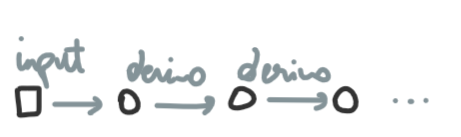 input derivo derivo ...